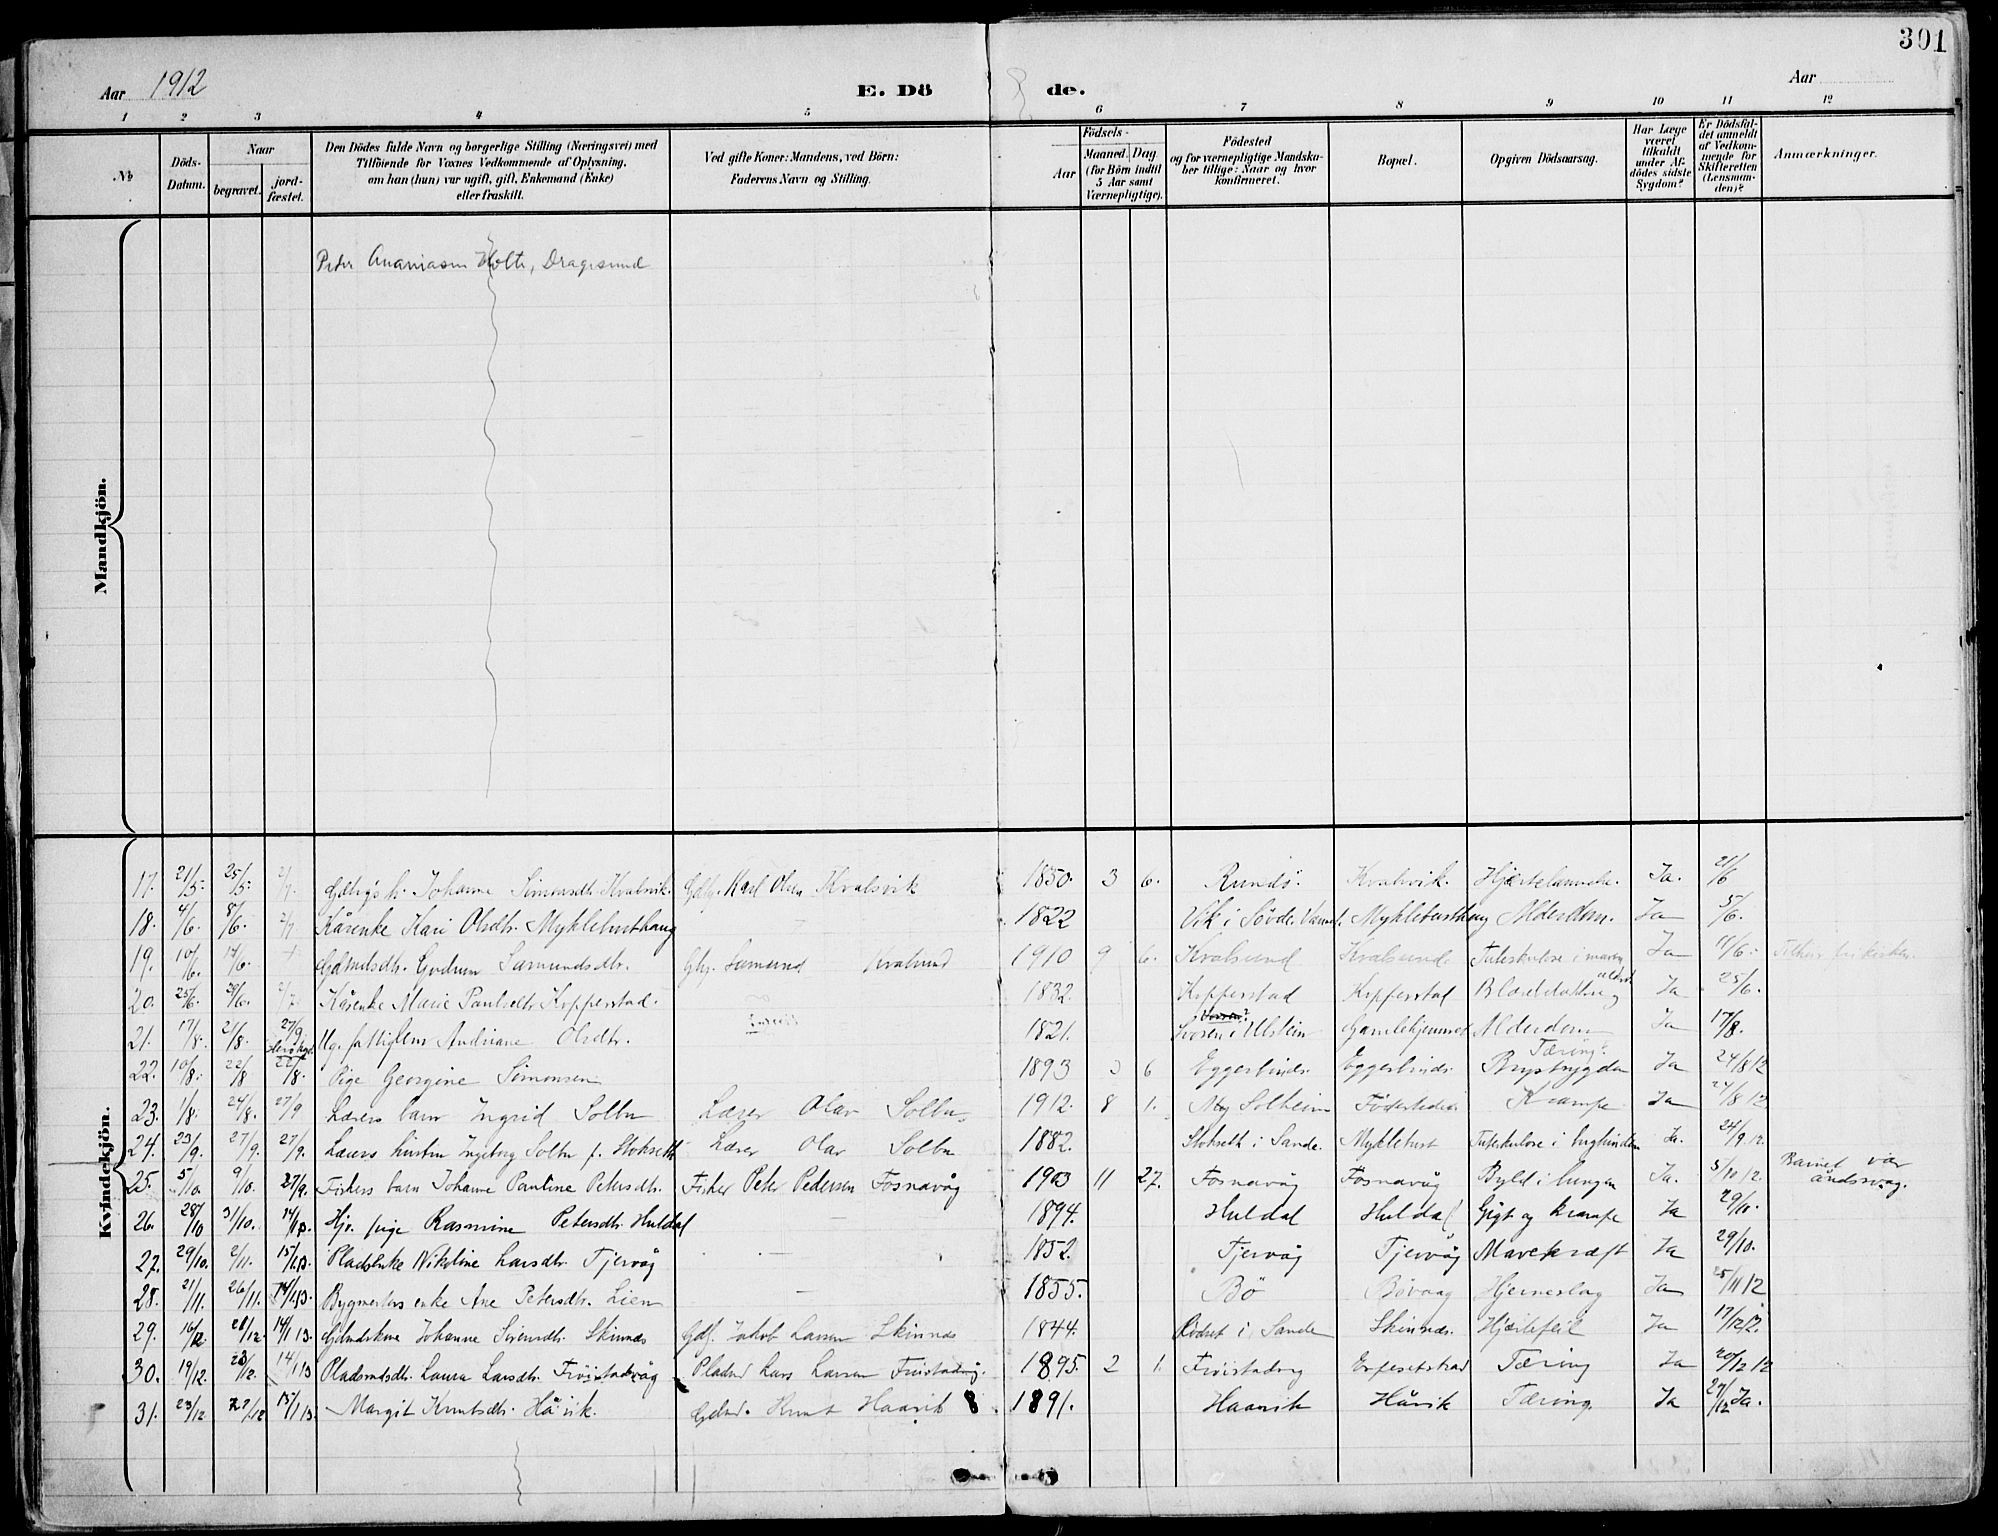 301
Aar 1912 E. Dö de. Aar
1 2 3 4 5 6 7 8 9 10 11 12
№
Döds-Datum.
Naar
begravet.
jord-fæstet.
Den Dödes fulde Navn og borgerlige Stilling (Næringsvei) med
Tilföiende for Voxnes Vedkommende af Oplysning,
om han (hun) var ugift, gift, Enkemand (Enke)
eller fraskilt.
Ved gifte Koner: Mandens, ved Börn:
Faderens Navn og Stilling.
Födsels-
Aar
Maaned. Dag
(for Börn indtil
5 Aar samt
Værnepligtige).
Födested
og for værnepligtige Mandska-
ber tillige: Naar og hvor
konfirmeret.
Bopæl.
Opgiven Dödsaarsag.
Har Læge
været
tilkaldt
under Af-
dödes sidste
Sygdom?
Er Dödsfal-
det anmeldt
af Vedkom-
mende for
Skifteretten
(Lensman-
den)?
Anmærkninger.
Mandkjön.
Peter Ananiasen Holte, Dragesund
Kvindekjön.
17. 21/5 25/5 2/7 Johanne Simonsdtr. Kvalsvik. Karl Olsen Kvalsvik 1850. 3 6. Rundö. Kvalsvik. Ja. 21/6
18. 4/6. 8/6. 2/7 Kårenke Kari Olsdtr. Myklebusthaug 1822 Vik i Søvde. Myklebusthaug Alderdom. Ja 5/6.
19. 10/6. 14/6. + Gudrun Samundsdtr. Kvalsund 1910 9 6. Kvalsund Kvalsund. Ja 11/6
20. 25/6. 29/6. 2/7. Kårenke Marie Paulsdtr. Kopperstad. 1832. Kopperstad Kopperstad Ja 25/6.
21. 17/8. 21/8. 27/9. Ug. fattiglem Andriane Olsdtr. 1821. i Ulstein Gamlehjemmet Alderdom Ja 17/8.
22. 19/8. 22/8 22/8. Pige Georgine Simonsen 1893 3 6 Eggesbönes Eggesbönes Brystsygdom Tæring? Ja 24/8 12
23. 1/8. 24/8. 27/9 Lærers barn Ingrid Solbu Lærer Olav Solbu 1912. 8 1. Solheim Födestedet Krampe Ja 24/8 12
24. 23/9. 27/9. 27/9. Lærers hustru Ingeborg Solbu f. Stokseth Lærer Olav Solbu 1882. Stokseth i Sande. Myklebust Ja. 24/9 12.
25. 5/10. 9/10. 27/9. Fiskers barn Johanne Pauline Petersdtr. Fisker Peter Pedersen Fosnavåg 1903 11 27. Fosnavåg Fosnavåg Byld i lungen Ja. 5/10 12. Barnet var åndssvag.
26. 28/10 31/10. 14/1 13. Hjv. pige Rasmine Petersdtr. Huldal — 1894. Huldal Huldal Gigt og krampe Ja 29/10.
27. 29/10. 2/11. 15/1 13. Pladsenke Nikoline Larsdtr. Tjervåg — 1852. Tjervåg Tjervåg Mavekræft Ja 29/10.
28. 21/11. 26/11. 14/1 13. Bygmesters enke Ane Petersdtr. Lien — 1855. Bö Bövaag Hjerneslag Ja 25/11 12
29. 16/12 21/12. 14/1 13. Johanne Sivertsdtr. Skinnes Gdf. Jakob Larsen Skinnes 1844. i Sande Skinnes. Hjertefeil Ja 17/12 12.
30. 19/12. 23/12. 14/1 13 Pladsmdsdtr. Laura Larsdtr. Fröistadvåg Pladsmd Lars Larsen Fröistadvåg. 1895. 2 1. Fröistadvåg Tæring Ja 20/12 12
31. 23/12 27/12 15/1 13. Margit Knutsdtr. Håvik. Gdmd. Knut Haavik 8 1891. Haavik Håvik Tæring. Ja 27/12 Ja.